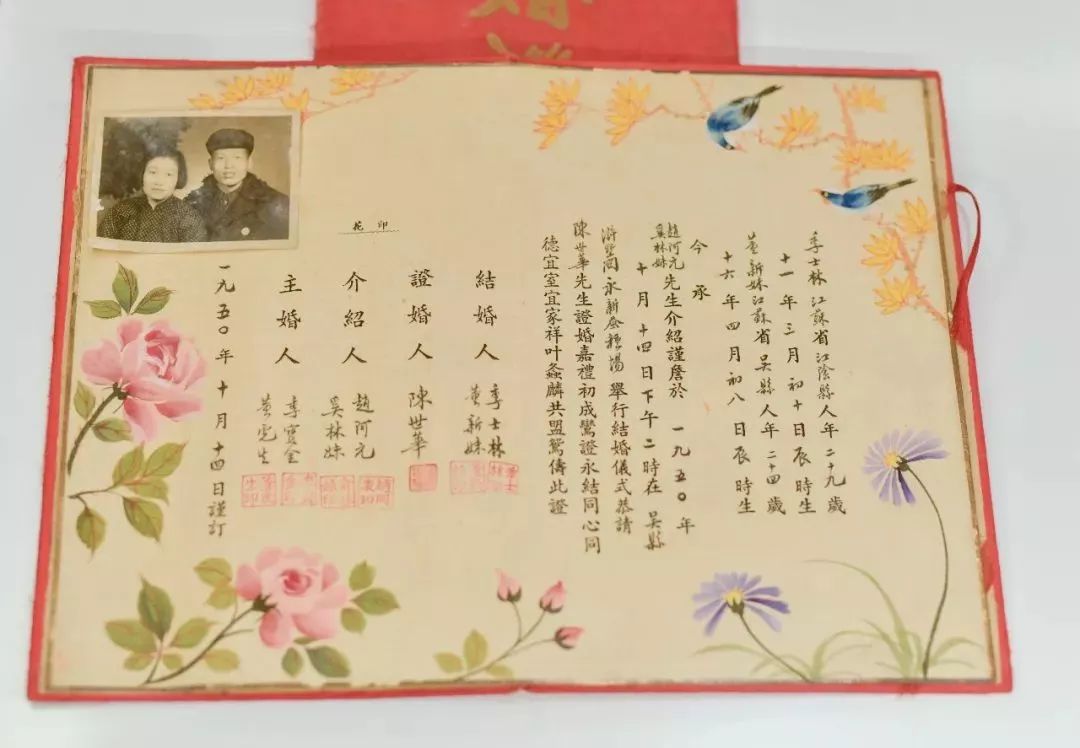 季士林 江蘇省江陰縣人年二十九歲
十一年三月初十日辰時生
董新妹江蘇省吳縣人年二十四歲
十六年四月初八日辰時生
今承
趙河元
吳林妹
先生介紹謹詹於 一九五〇年
十月十四日下午二時在 吳縣
滸墅関永新蚕種場 舉行結婚儀式恭請
陳世華先生證婚嘉禮初成鸞證永結同心同
德宜室宜家祥叶螽麟共盟鴛儔此證
結婚人 季士林
董新妹
證婚人 陳世華
印花
介紹人 趙河元
吳林妹
主婚人
一九五〇年十月十四日謹訂